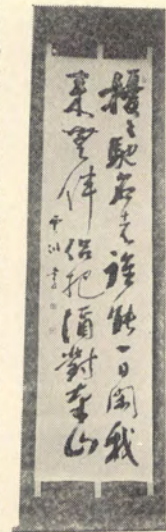 擾〻馳名者誰能一日閑我
來無伴侶把酒對南山
雲洲書